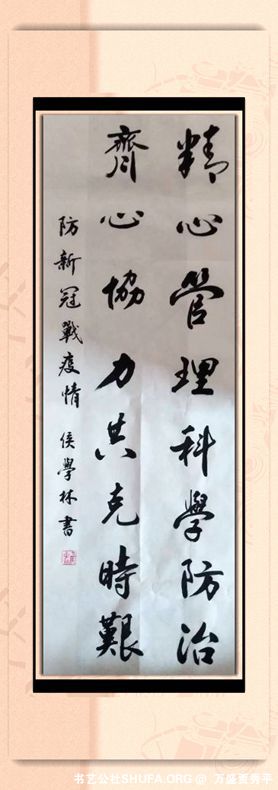 精心管理科學防治
齊心協力共克時艱
防新冠戰疫情 侯學林書
书艺公社SHUFA.ORG @ 万盛贾舜年